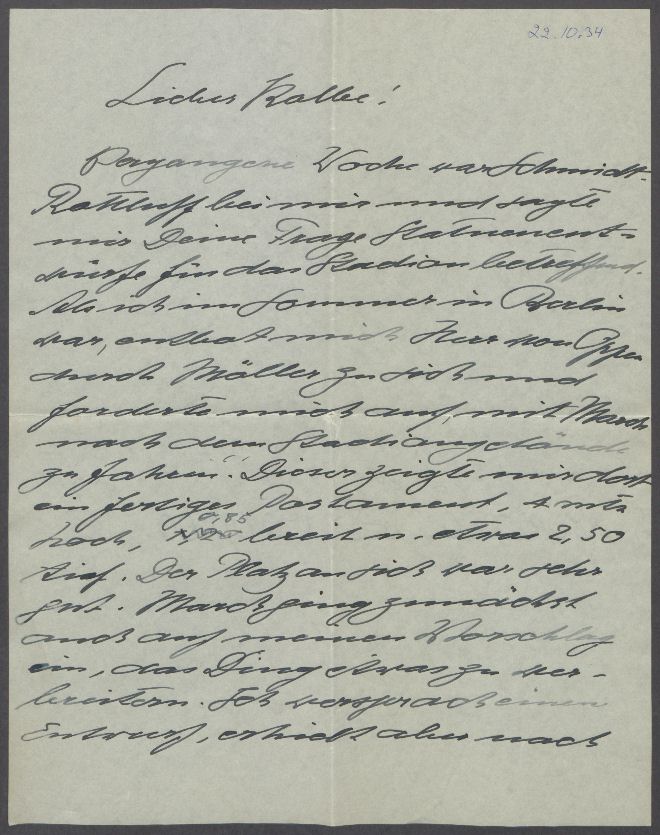 22.10.34
Lieber Kolbe!
Vergangene Woche war Schmidt-
Rottluff bei mir und sagte
mir Deine Frage Statuenent-
würfe für das Stadion betreffend.
Als ich im Sommer in Berlin
war, entbot mich Herr von Oppen
durch Möller zu sich und
forderte mich auf, mit March
nach dem Stadiongelände
zu fahren. Dieser zeigte mir dort
ein fertiges Postament, 4 mtr
hoch, 0,85 breit u. etwas 2,50
tief. Der Platz an sich war sehr
gut. March ging zunächst
auch auf meinen Vorschlag
ein, das Ding etwas zu ver-
breitern. Ich versprach einen
Entwurf, erhielt aber nach